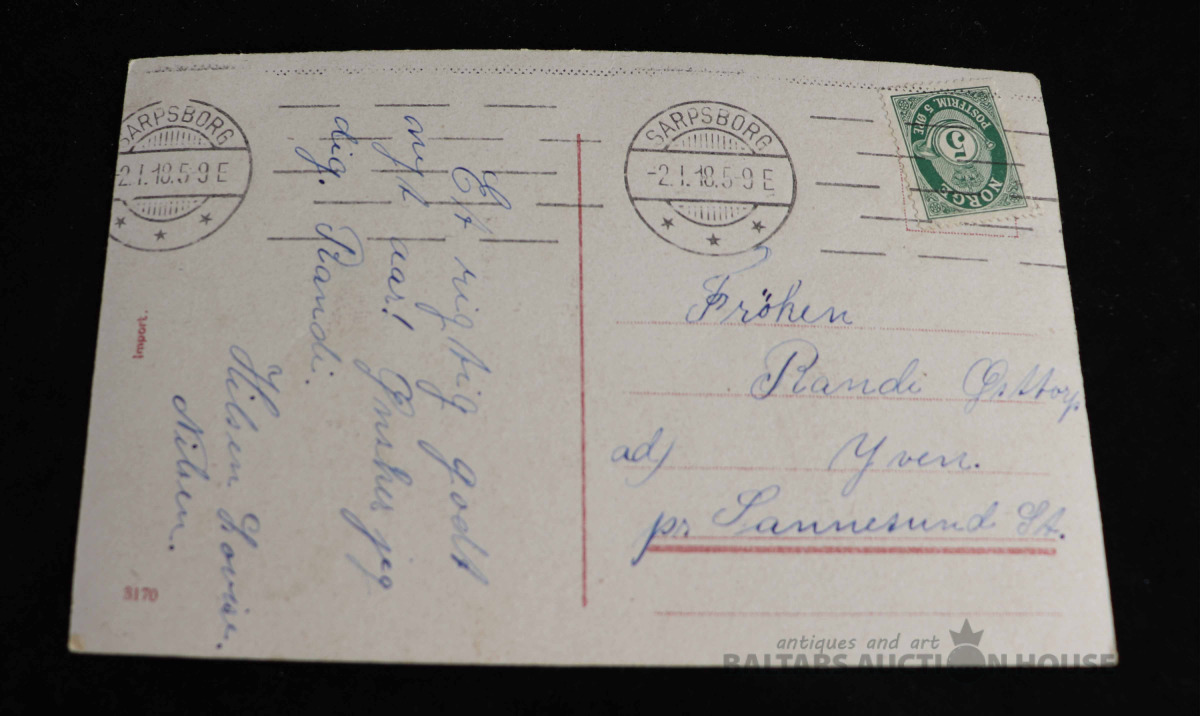 SARPSBORG
-2.I.18.5-9 E
SARPSBORG
-2.I.18.5-9 E
POSTFRIM. 5 ØRE
5
NORGE
Et rigtig godt
nyt aar! Ønsker jeg
dig. Randi.
Hilsen Lovise.
Nilsen.
Import.
3170
Frøken
Randi
adj Yven.
pr Sannesund St.
antiques and art
BALTARS AUCTION HOUSE